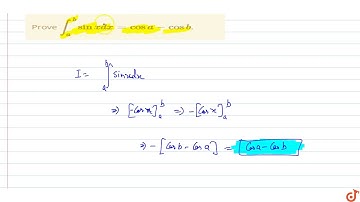 Prove ∫ₐᵇ sin x dx = cos a − cos b.
I = ∫ₐᵇ sin x dx
⇒ [-Cos x]ₐᵇ ⇒ -[Cos x]ₐᵇ
⇒ -[Cos b - Cos a] = Cos a - Cos b